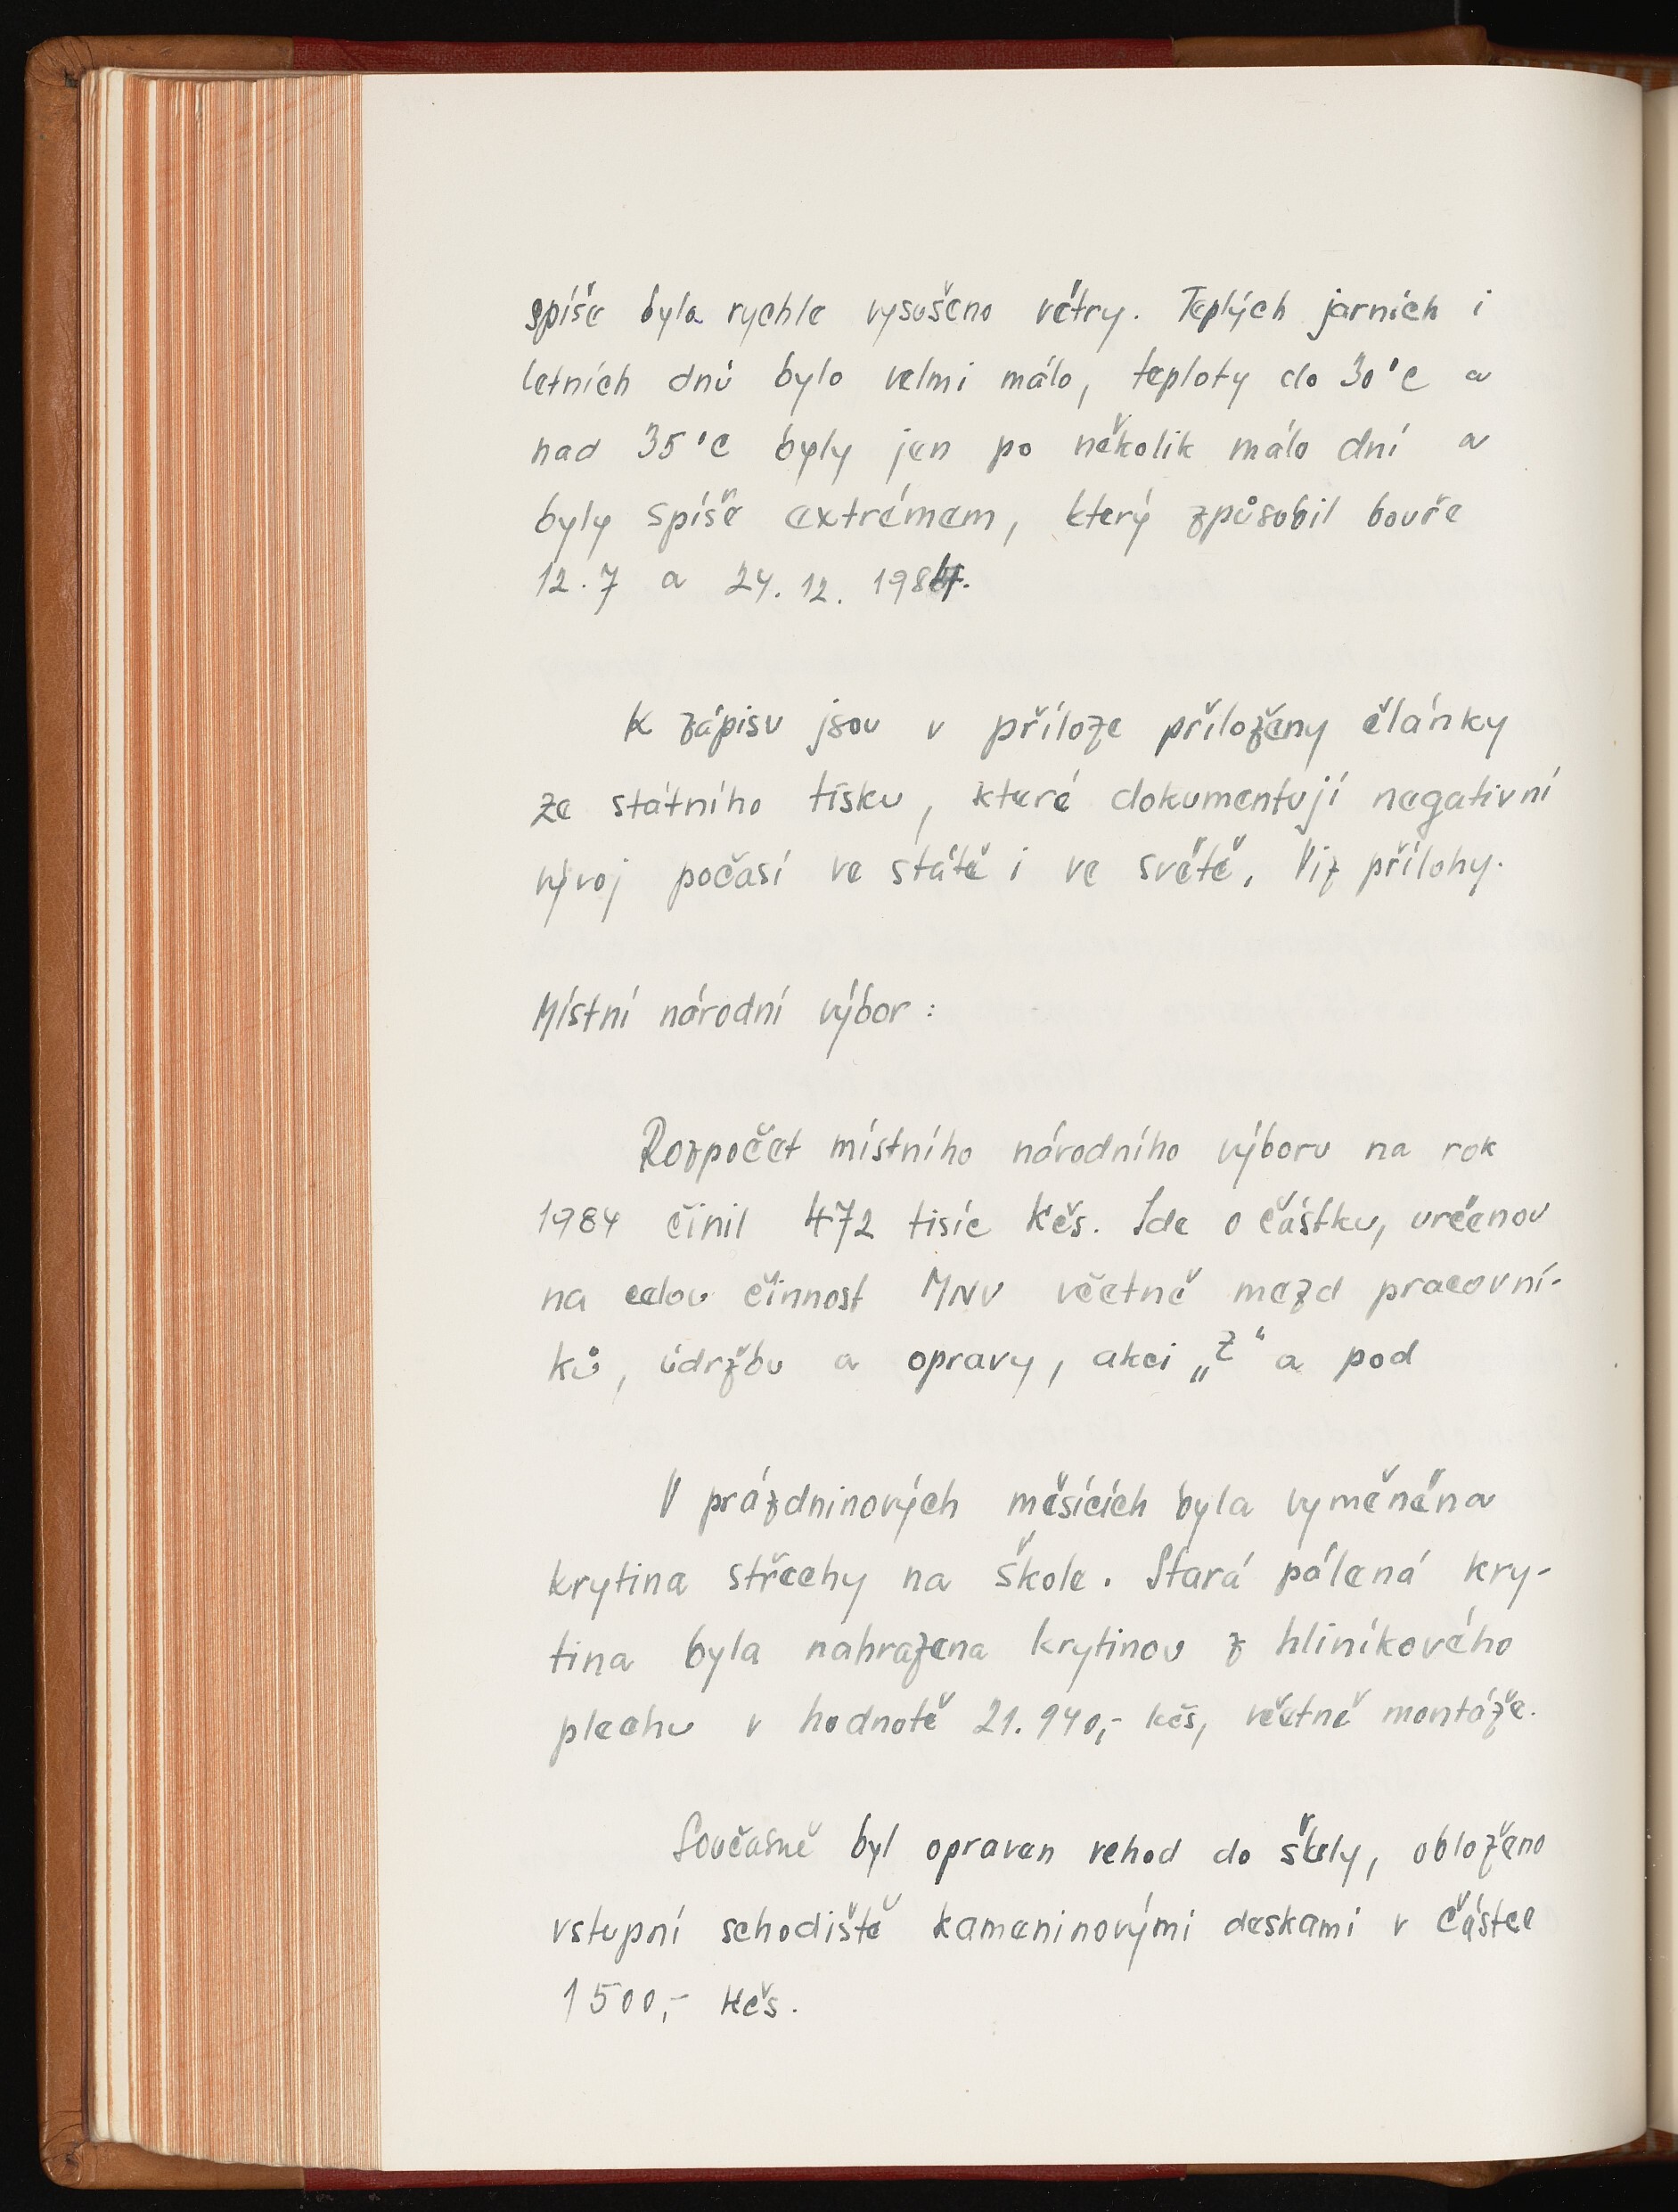 spíše byla rychle vysušeno větry. Teplých jarních i
letních dnů bylo velmi málo, teploty do 30°C a
nad 35°C byly jen po několik málo dní a
byly spíše extrémem, který způsobil bouře
12.7 a 24.12. 1984.
K zápisu jsou v příloze přiloženy články
ze státního tisku, které dokumentují negativní
vývoj počasí ve státě i ve světě, Viz přílohy.
Místní národní výbor:
Rozpočet místního národního výboru na rok
1984 činil 472 tisíc Kčs. Jde o částku, určenou
na celou činnost MNV včetně mezd pracovní-
ků, údržbu a opravy, akci „Z“ a pod
V prázdninových měsících byla vyměněna
krytina střechy na škole. Stará pálená kry-
tina byla nahrazena krytinou z hliníkového
plechu v hodnotě 21.940,- kčs, včetně montáže.
Současně byl opraven vchod do školy, obloženo
vstupní schodiště kameninovými deskami v částce
1500,- Kčs.